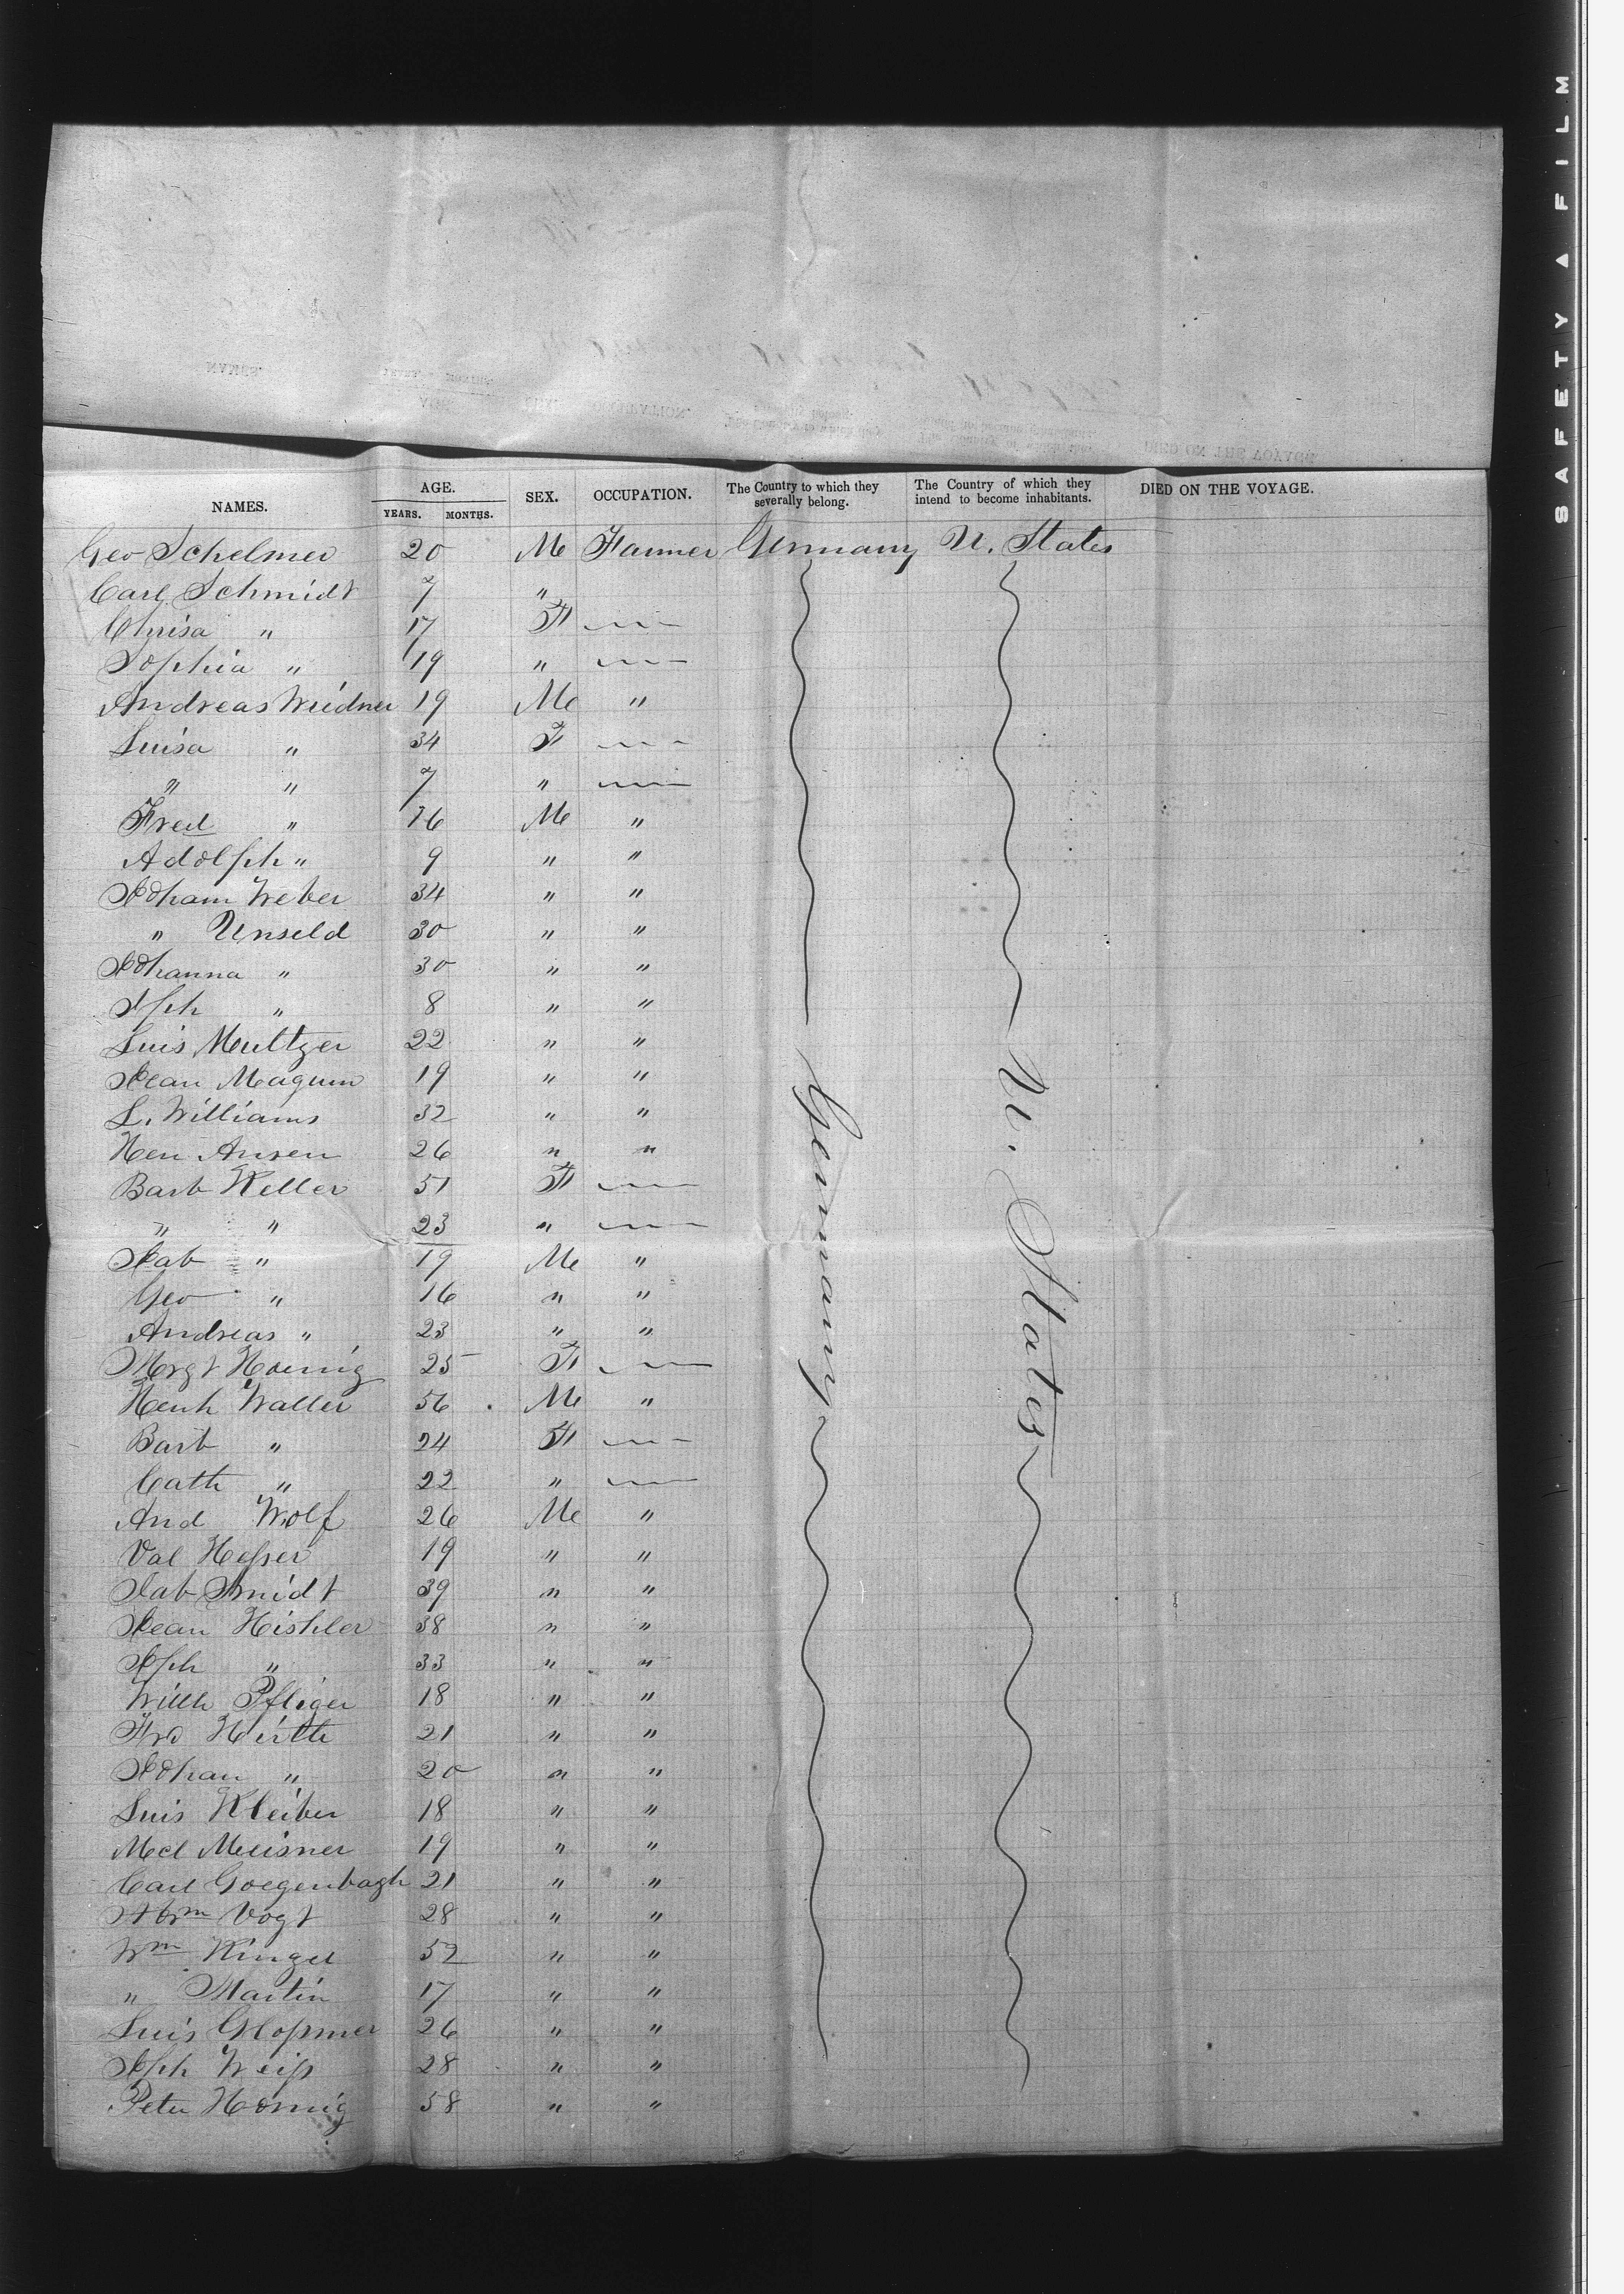 NAMES. AGE. YEARS. MONTHS. SEX. OCCUPATION. The Country to which they severally belong. The Country of which they intend to become inhabitants. DIED ON THE VOYAGE.
Geo Schelmer 20 Me Farmer Germany U. States
Carl Schmidt 7 "
Chrisa " 17 F —
Sophia " 19 " —
Andreas Weidner 19 Me "
Luisa " 34 F —
" " 7 " —
Fred " 16 Me "
Adolph " 9 " "
Joham Weber 34 " "
" Unseld 30 " "
Johanna " 30 " "
Jph " 8 " "
Luis Meultzer 22 " "
Jean Magum 19 " "
L. Williams 32 " "
Hen Ansen 26 " "
Barb Keller 51 F —
" " 23 " —
Jab " 19 Me "
Geo " 16 " "
Andreas " 23 " "
Mrgt Hoenig 25 F —
Henh Waller 56 Me "
Barb " 24 F —
Cath " 22 " —
And Wolf 26 Me "
Val Hesser 19 " "
Jab Smidt 39 " "
Jean Hishler 38 " "
Jph " 33 " "
Willh Pfliger 18 " "
Frd Hirth 21 " "
Johan " 20 " "
Luis Kleiber 18 " "
Mcl Meisner 19 " "
Carl Goegenbagh 21 " "
Abrm Vogt 28 " "
Wm Kinzel 52 " "
" Martin 17 " "
Luis Glossmer 26 " "
Jph Weiss 28 " "
Peter Hornig 58 " "
Germany
U. States
SAFETY ▲ FILM